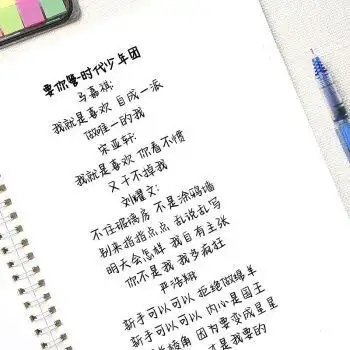 要你管-时代少年团
马嘉祺:
我就是喜欢 自成一派
做唯一的我
宋亚轩:
我就是喜欢 你看不惯
又干不掉我
刘耀文:
不住玻璃房 不是涂鸦墙
别来指指点点 乱说乱写
明天会怎样 我自有主张
你不是我 我多疯狂
严浩翔:
新手可以可以 拒绝做绵羊
新手可以可以 内心是国王
棱角 因为要变成星星
是我要的